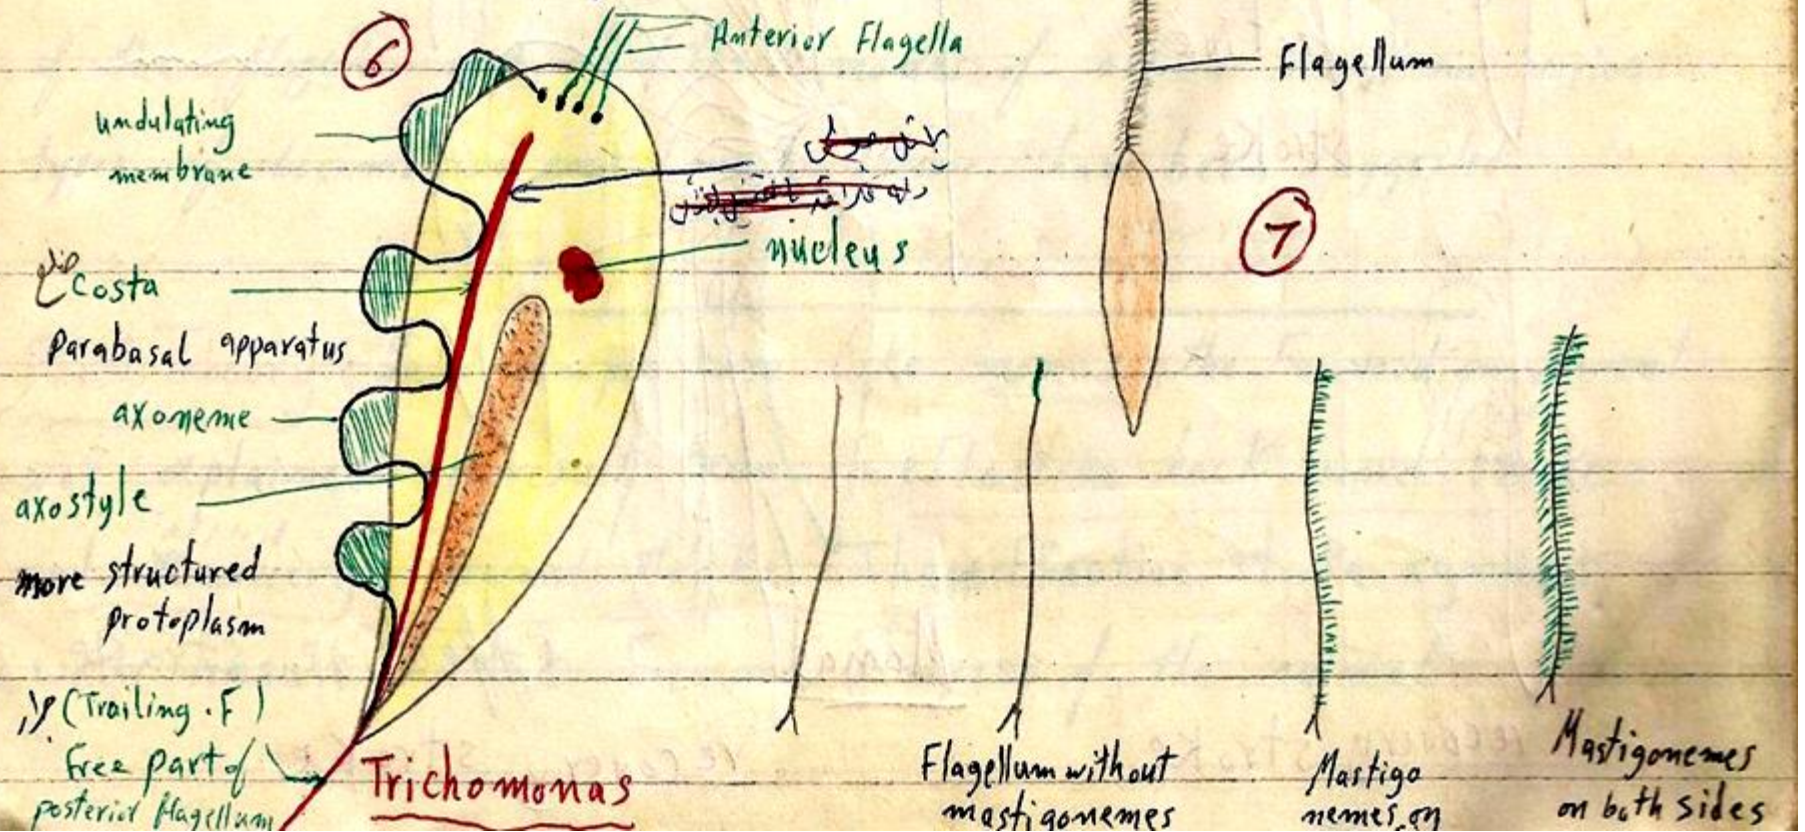 6
Anterior Flagella
undulating
membrane
nucleus
Costa
Parabasal apparatus
axoneme
axostyle
more structured
protoplasm
(Trailing . F)
Free part of
posterior flagellum
Trichomonas
Flagellum
7
Flagellum without
mastigonemes
Mastigo
nemes on
Mastigonemes
on both sides